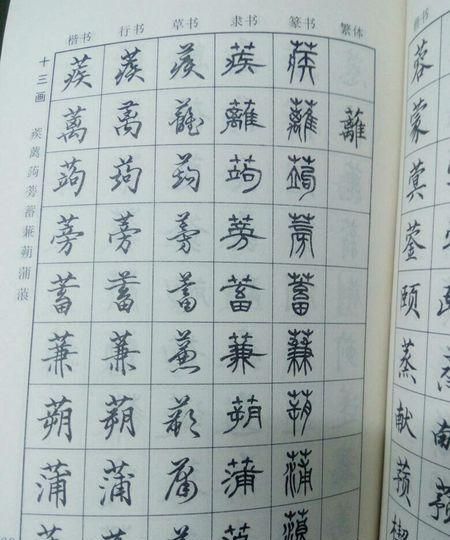 楷书 行书 草书 隶书 篆书 繁体
十三画
蒺蓠蒟蒡蓄蒹蒴蒲蒗
蒺 蒺 蒺 蒺 蒺
蓠 蓠 蘺 蘺 蘺 蘺
蒟 蒟 蒟 蒟 蒟
蒡 蒡 蒡 蒡 蒡
蓄 蓄 蓄 蓄 蓄
蒹 蒹 蒹 蒹 蒹
蒴 蒴 蒴 蒴 蒴
蒲 蒲 蒲 蒲 蒲
楷书
蓉
蒙
蓂
蓥
颐
蒸
献
蓣
楔